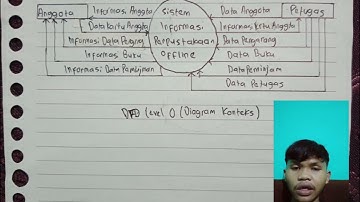 Anggota
Informasi Anggota
Sistem
Data Anggota
Petugas
Data kartu Anggota
Informasi
Informasi Kartu Anggota
Informasi Data Pengarang
Perpustakaan
Data Pengarang
Informasi Buku
offline
Data Buku
Informasi Data Peminjam
Data Peminjam
Data Petugas
DFD Level 0 (Diagram Konteks)